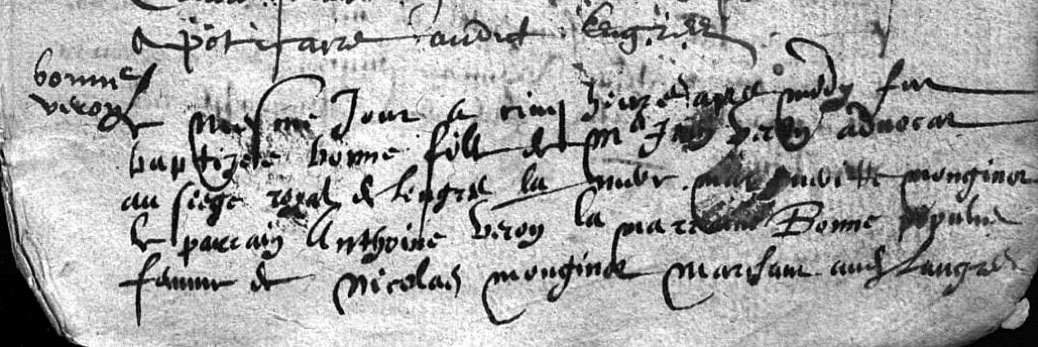 apoticaire audict Lengres
bonne
veron
Le mesme Jour a cinq heures apres midy fut
baptizee bonne fille de Me Jean veron advocat
au siege royal de Lengres la mere monginot
le parrain Anthoine veron la marraine Bonne
femme de Nicolas monginot marchant aud Langres